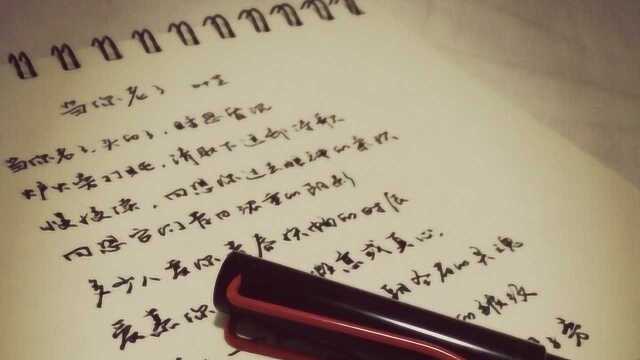 当你老了 叶芝
当你老了,头白了,睡思昏沉
炉火旁打盹,请取下这部诗歌
慢慢读,回想你过去眼神的柔和
回想它们昔日浓重的阴影
多少人爱你青春欢畅的时辰
爱慕你 假意或真心
朝圣者的灵魂
的皱纹
旁